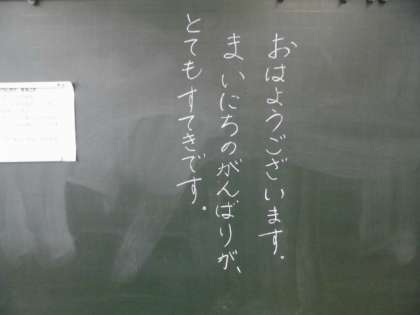 おはようございます。
まいにちのがんばりが、
とてもすてきです。